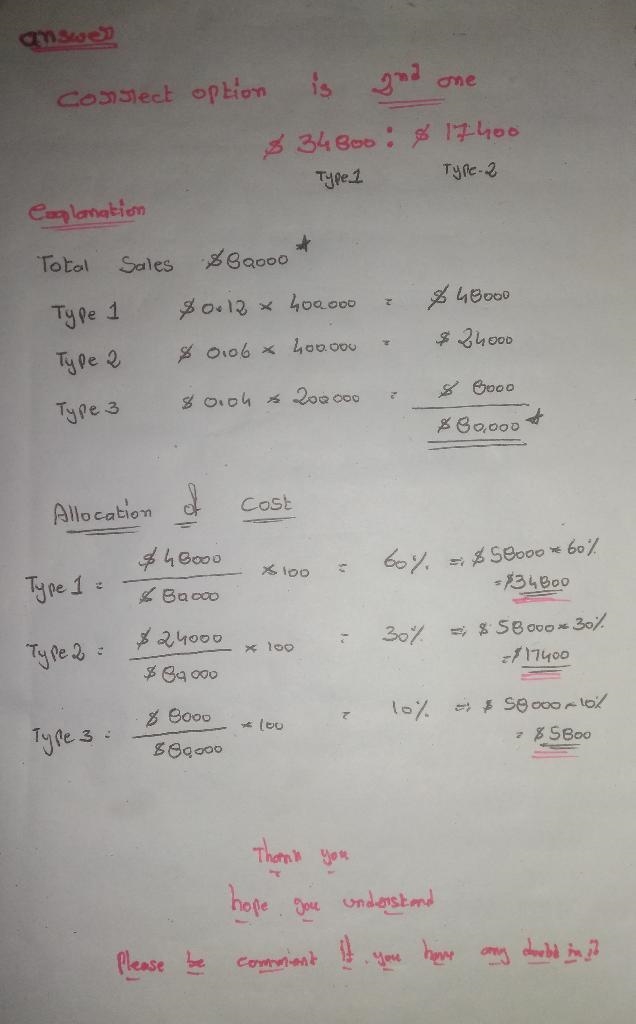 answer
Correct option is 2nd one
$ 34800 : $ 17400
Type 1 Type-2
Explanation
Total Sales $80000 *
Type 1 $0.12 × 400000 = $ 48000
Type 2 $ 0.06 × 400000 = $ 24000
Type 3 $ 0.04 × 200000 = $ 8000
$80,000 *
Allocation of Cost
Type 1 = $48000 / $80000 × 100 = 60% => $58000 × 60%
= $34800
Type 2 = $24000 / $80000 × 100 = 30% => $58000 × 30%
= $17400
Type 3 = $8000 / $80,000 × 100 = 10% => $58000 × 10%
= $5800
Thank you
hope you understand
Please be comment if you have any doubt in it